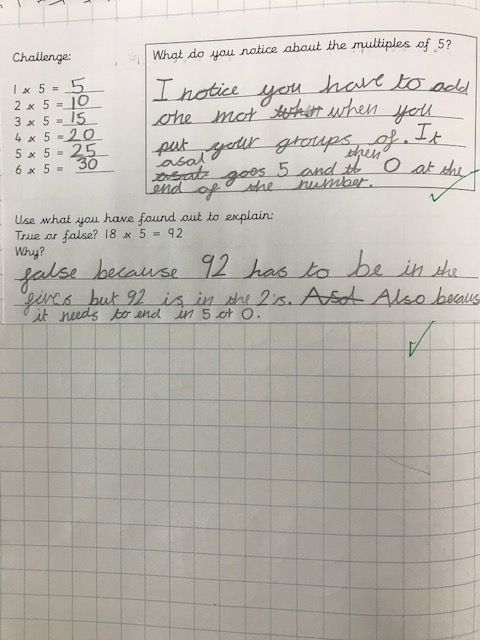 Challenge:
1 x 5 = 5
2 x 5 = 10
3 x 5 = 15
4 x 5 = 20
5 x 5 = 25
6 x 5 = 30
What do you notice about the multiples of 5?
I notice you have to add
one mor when you
put your groups of. It
asal goes 5 and then 0 at the
end of the number.
Use what you have found out to explain:
True or false? 18 x 5 = 92
Why?
false because 92 has to be in the
fives but 92 is in the 2's. Asd Also becaus
it needs to end in 5 or 0.